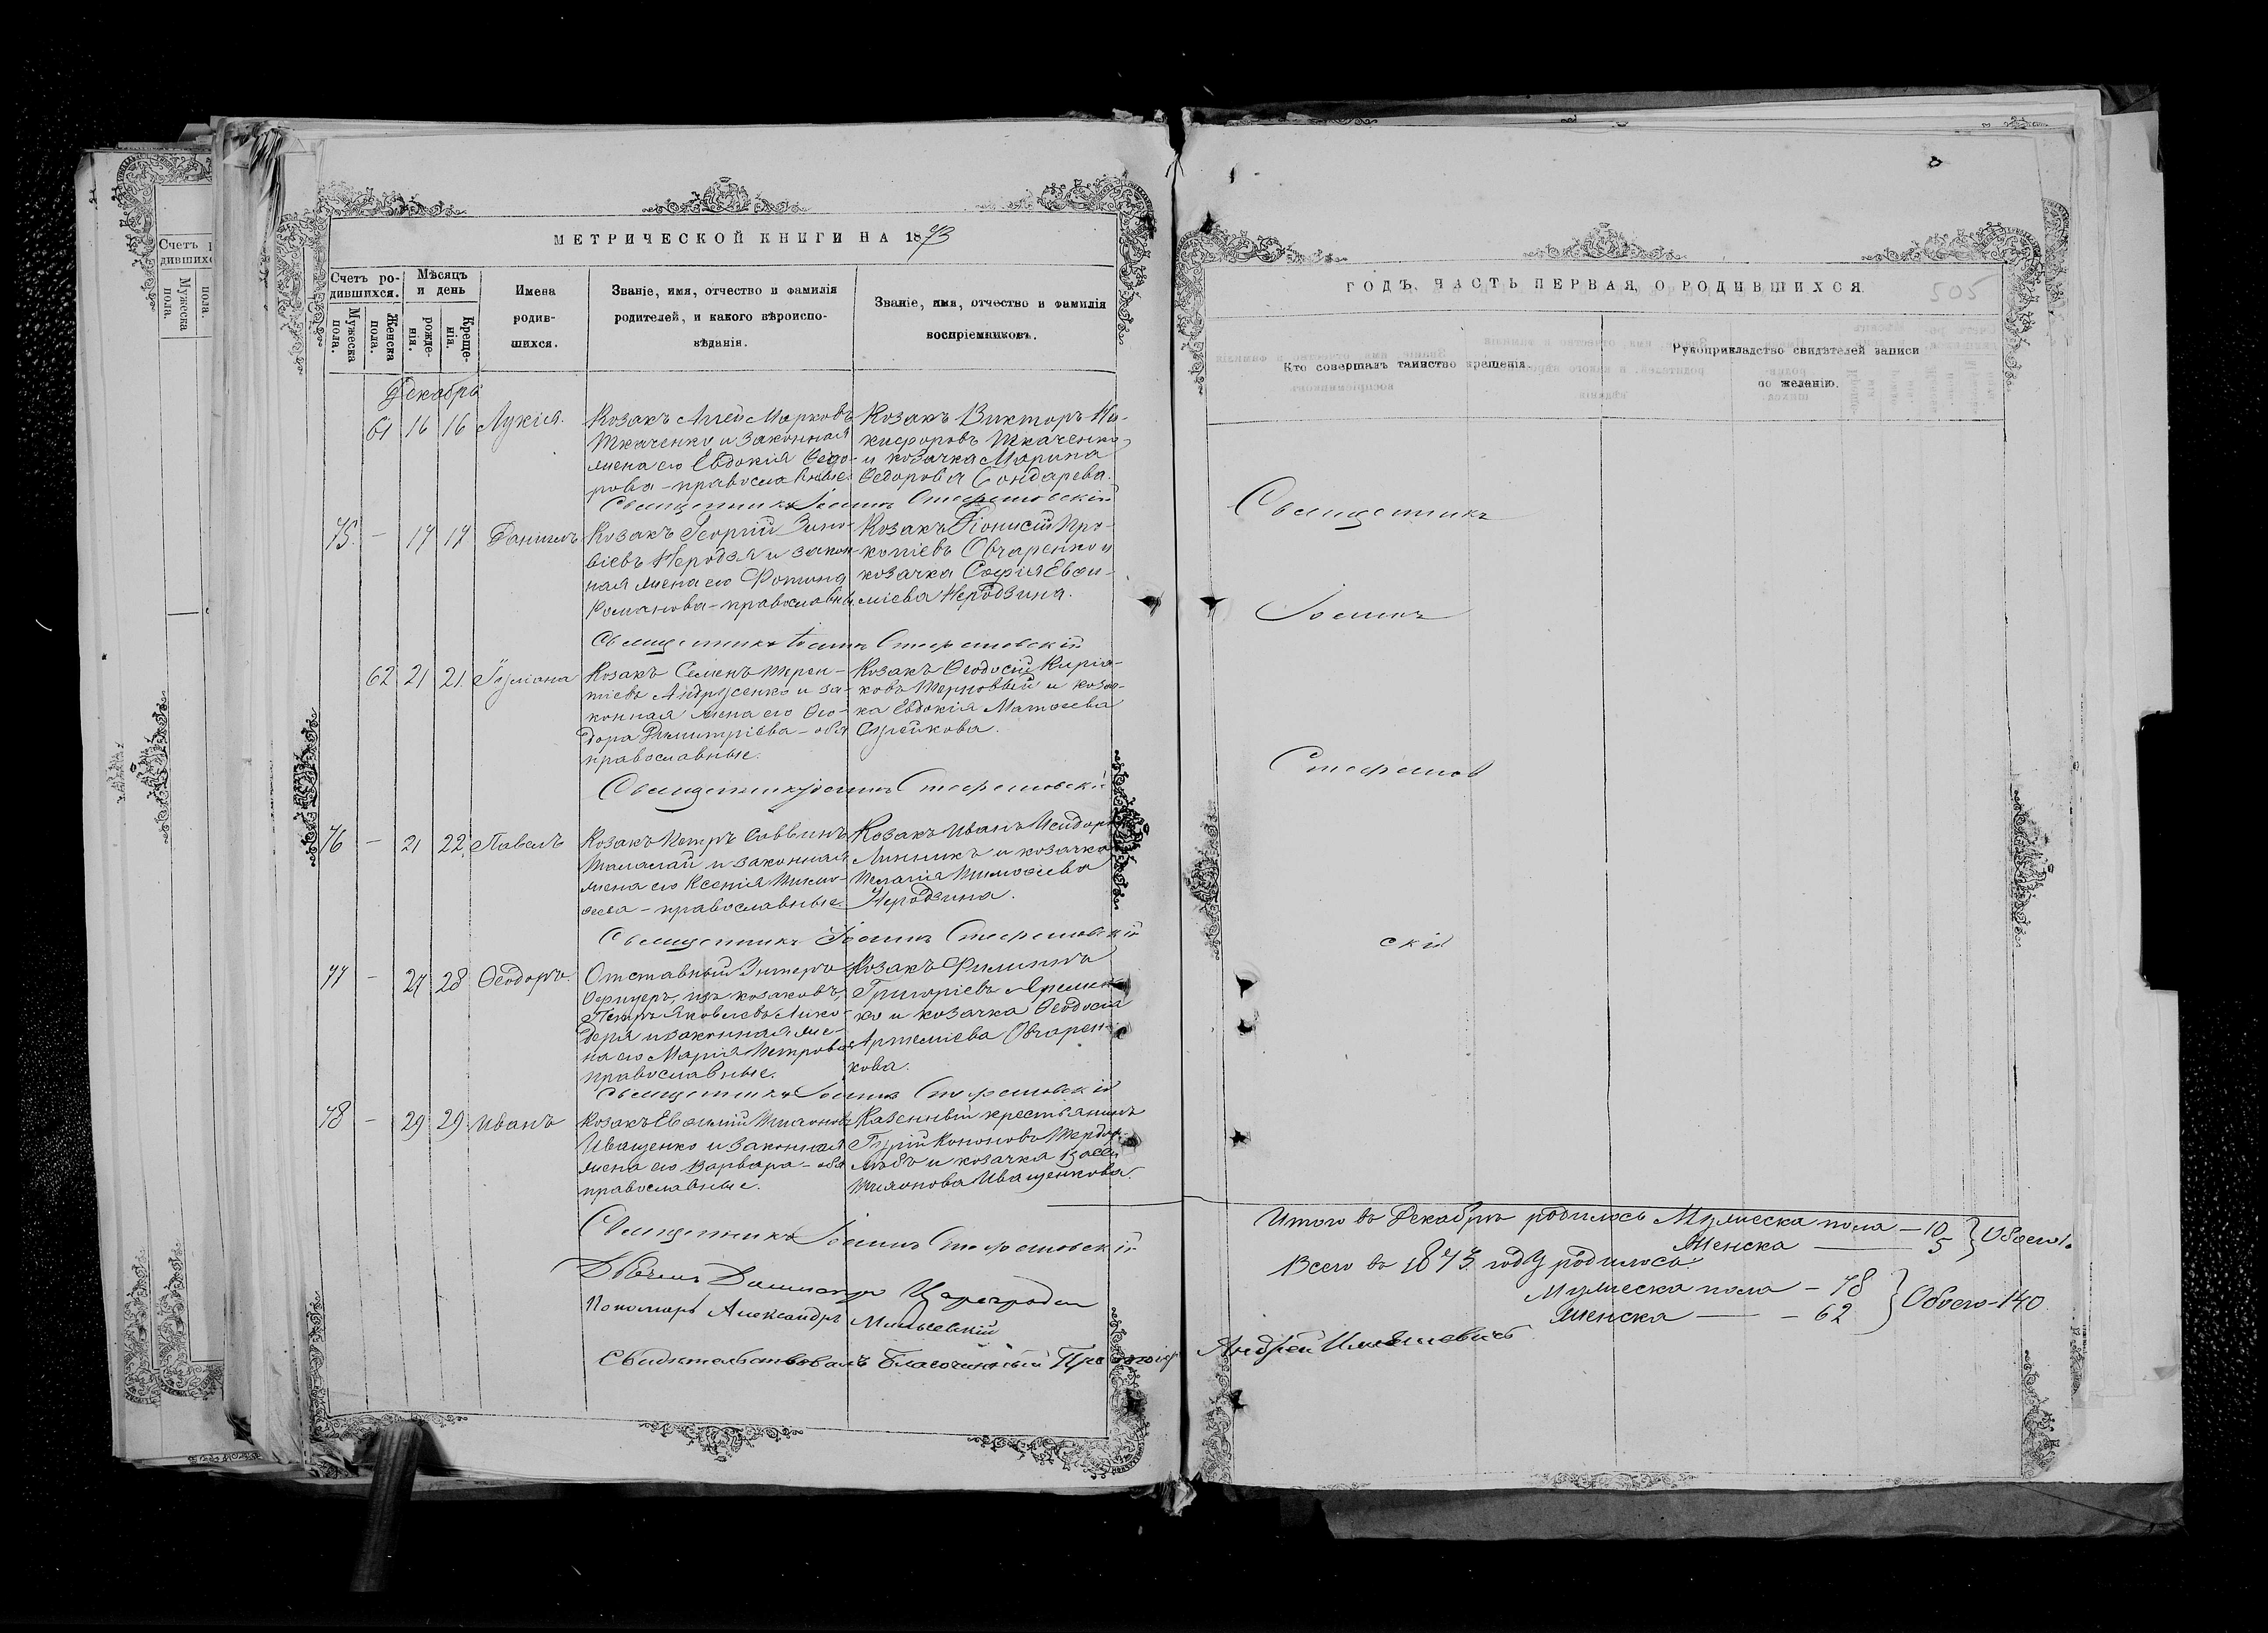 Счетъ
дившихс
Мужеска пола.
пола.
МЕТРИЧЕСКОЙ КНИГИ НА 1873
Счетъ ро-
дившихся.
Мужеска пола.
Женска пола.
Мѣсяцъ
и день
рожде-
нія.
Креще-
нія.
Имена
родив-
шихся.
Званіе, имя, отчество и фамилія
родителей, и какого вѣроиспо-
вѣданія.
Званіе, имя, отчество и фамилія
воспріемниковъ.
Декабрь
61 16 16 Лукія.
Козакъ Марковъ
Ткаченко и законная
жена его Евдокія Ѳедо-
рова - православные.
Козакъ Викторъ Ни-
кифоровъ Ткаченко
и козачка Марина
Ѳедорова Бондарева.
Священникъ Іоаннъ Стефановскій
75. - 17 17 Даніилъ
Козакъ Георгій Зино-
віевъ Неродза и закон-
ная жена его Фотина
Романова - православны
Козакъ Діонисій Про-
копіевъ Овчаренко и
козачка Софія Евѳи-
міева Неродзина.
Священникъ Іоаннъ Стефановскій
62 21 21 Іуліана
Козакъ Семенъ Терен-
тіевъ Андрусенко и за-
конная жена его Ѳео-
дора Димитріева - оба
православные.
Козакъ Ѳеодосій Киріа-
ковъ Терновый и козач-
ка Евдокія Матѳеева
Священникъ Іоаннъ Стефановскій
76 - 21 22 Павелъ
Козакъ Петръ Саввинъ
Шаламай и законная
жена его Ксенія Тимо-
ѳеева - православные.
Козакъ Иванъ Исидор
Линникъ и козачка
Пелагія Тимоѳеева
Неродзина.
Священникъ Іоаннъ Стефановскій
77 - 27 28 Ѳеодоръ.
Отставный Унтеръ
Офицеръ, изъ козаковъ,
Петръ Яковлевъ
и законная же-
на его Марія Петрова
православные.
Козакъ Филиппъ
Григоріевъ Яремен
ко и козачка Ѳеодосія
Артеміева Овчарен-
кова.
Священникъ Іоаннъ Стефановскій
78 - 29 29 Иванъ
Козакъ Евѳимій Тихоновъ
Иващенко и законная
жена его Варвара - оба
православные.
Казенный крестьянинъ
Гурій Кононовъ
и козачка
Тихонова Иващенкова.
Священникъ Іоаннъ Стефановскій
Дьячекъ Цареградск
Пономарь Александръ
Свидѣтельствовалъ Благочинный Протоіер Андрей
ГОДЪ, ЧАСТЬ ПЕРВАЯ, О РОДИВШИХСЯ.
505
Кто совершалъ таинство крещенія.
Рукоприкладство свидѣтелей записи
по желанію.
Священникъ
Іоаннъ
Стефанов
скій
Итого въ Декабрѣ родилось Мужеска пола - 10
Женска — 5
Обоего
Всего въ 1873 году родилось
Мужеска пола - 78
Женска — - 62
Обоего - 140.